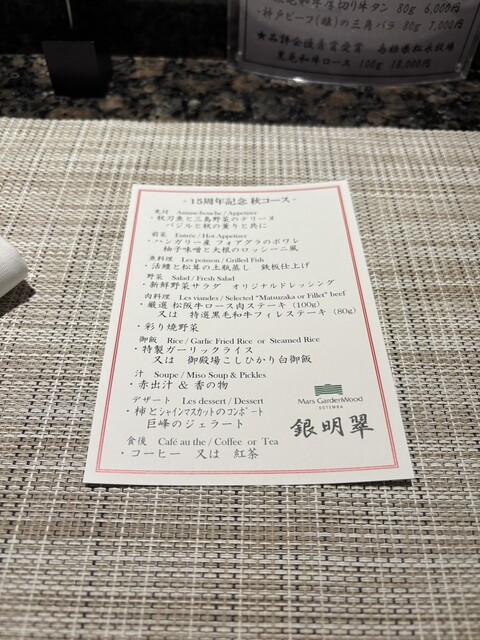 黒毛和牛厚切り牛タン 80g 6,000円
・神戸ビーフ(雌)の三角バラ 80g 7,000円
★品評会優秀賞受賞 島根県松永牧場
黒毛和牛ロース 100g 18,000円
- 15周年記念 秋コース -
先付 Amuse-bouche / Appetizer
・秋刀魚と三島野菜のテリーヌ
バジルと秋の薫りと共に
前菜 Entrée / Hot Appetizer
・ハンガリー産 フォアグラのポワレ
柚子味噌と大根のロッシーニ風
魚料理 Les poisson / Grilled Fish
・活鱧と松茸の土瓶蒸し 鉄板仕上げ
野菜 Salad / Fresh Salad
・新鮮野菜サラダ オリジナルドレッシング
肉料理 Les viandes / Selected "Matuzaka or Fillet" beef
・厳選 松阪牛ロース肉ステーキ (100g)
又は 特選黒毛和牛フィレステーキ (80g)
・彩り焼野菜
御飯 Rice / Garlic Fried Rice or Steamed Rice
・特製ガーリックライス
又は 御殿場こしひかり白御飯
汁 Soupe / Miso Soup & Pickles
・赤出汁 & 香の物
デザート Les dessert / Dessert
・柿とシャインマスカットのコンポート
巨峰のジェラート
食後 Café au the / Coffee or Tea
・コーヒー 又は 紅茶
Mars GardenWood
GOTEMBA
銀明翠